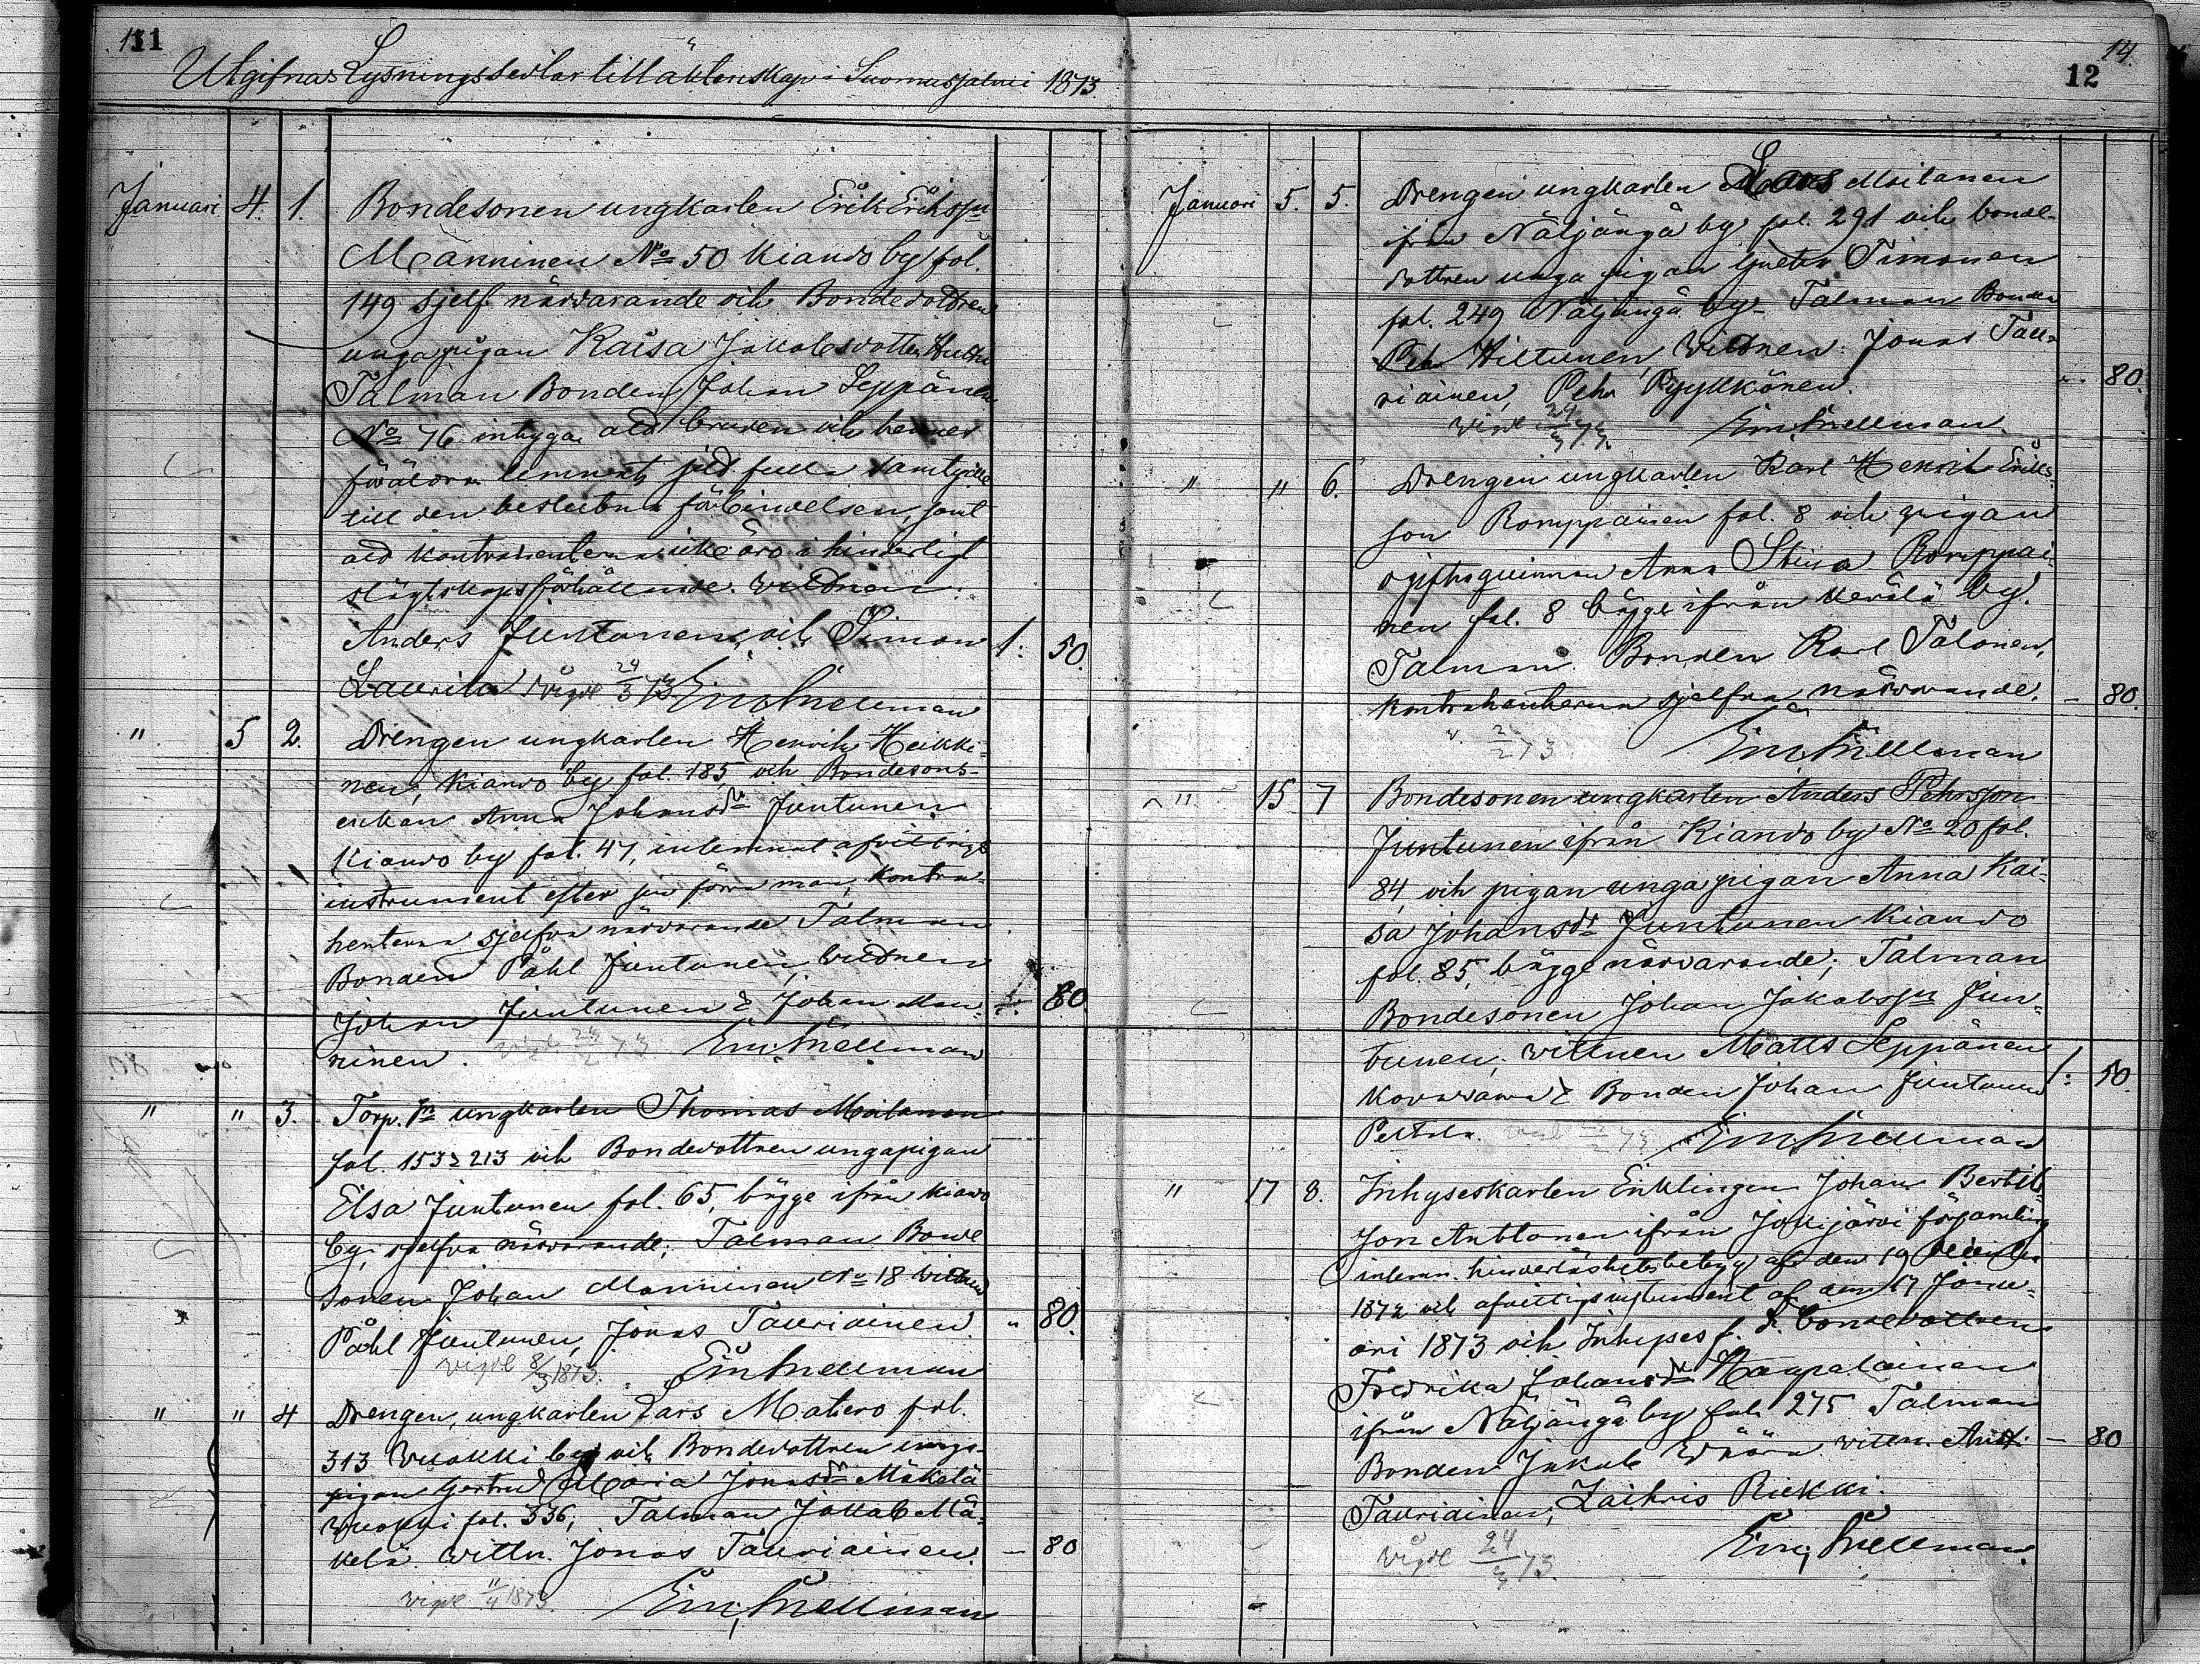 11
Utgifna Lysningssedlar till äktenskap i Suomusjalmi 1873.
Januari 4. 1. Bondesonen ungkarlen Erik Eriksson
Manninen No 50 Kiando by fol.
149 sjelf närvarande och Bondedottren
unga pigan Kaisa Jakobsdotter
Talman Bonden Johan Seppänen
No 76 intyga att bruden och hennes
föräldrar lemnat sitt fulla samtycke
till den beslutna förbindelsen, samt
att kontrahenterna icke äro i hinderligt
slägtskapsförhållande. Vittnen:
Anders Juntunen och Simon 1: 50.
Laurila vigde 24/3 73. Em. Snellman
" 5 2. Drengen ungkarlen Henrik Heikki-
nen, Kiando by fol. 185 och Bondesons-
enkan Anna Johansdr Juntunen
Kiando by fol. 47, inlemnat afvittrings
instrument efter sin förra man, kontra-
henterna sjelfva närvarande Talman
Bonden Påhl Juntunen, vittnen
Johan Juntunen & Johan Man- 80.
ninen. Em. Snellman
" " 3. Torp. sn ungkarlen Thomas Moilanen
fol. 153 & 213 och Bondedottren unga pigan
Elsa Juntunen fol. 65, bägge ifrån Kiando
by, sjelfva närvarande; Talman Bonde
sonen Johan Manninen No 18 vittnen
Påhl Juntunen, Jonas Tauriainen. " 80.
vigde 8/3 1873. Em. Snellman
" " 4 Drengen, ungkarlen Lars Matero fol.
313 Vuokki by och Bondedottren unga-
pigan Gertrud Maria Jonasdr Mäkelä
Vuokki fol. 336; Talman Jakob Mä-
kelä. Vittn. Jonas Tauriainen. — 80
vigde 11/4 1873. Em. Snellman
14.
12
Januari 5. 5. Drengen ungkarlen Lars Moilanen
ifrån Näljångå by fol. 291 och bonde-
dottren unga pigan Greta Timonen
fol. 249 Näljångå by. Talman Bonden
Pehr Hiltunen, Vittnen: Jonas Tau-
riainen, Pehr Pyykkönen. 80.
vigde 24/3 73. Em. Snellman.
" " 6. Drengen ungkarlen Karl Henrik Eriks-
son Romppainen fol. 8 och pigan
ogifta qvinnan Anna Stina Romppai-
nen fol. 8 bägge ifrån Kerälä by.
Talman. Bonden Karl Talonen,
Kontrahenterna sjelfva närvarande. — 80.
73 Em. Snellman
" 15 7 Bondesonen ungkarlen Anders Pehrsson
Juntunen ifrån Kiando by No 20 fol.
84, och pigan unga pigan Anna Kai-
sa Johansdr Juntunen Kiando
fol. 85, bägge närvarande; Talman
Bondesonen Johan Jakobsson Jun-
tunen; vittnen Matts Seppänen
& Bonden Johan Juntunen 1: 50.
Peltola. 73 Em. Snellman
" 17 8. Inhyseskarlen Enklingen Johan Bertils-
son Anttonen ifrån Jokijärvi församling
inlemn. hinderlöshetsbetyg af den 19 December
1872 och afvittrings instrument af den 17 Janu-
ari 1873 och Inhyses f. d. bondedottren
Fredrika Johansdr Haapalainen
ifrån Näljångå by fol. 275 Talman
Bonden Jakob Wäärä vittn. — 80
Tauriainen, Riekki.
Vigde 24/3 73. Em. Snellman.